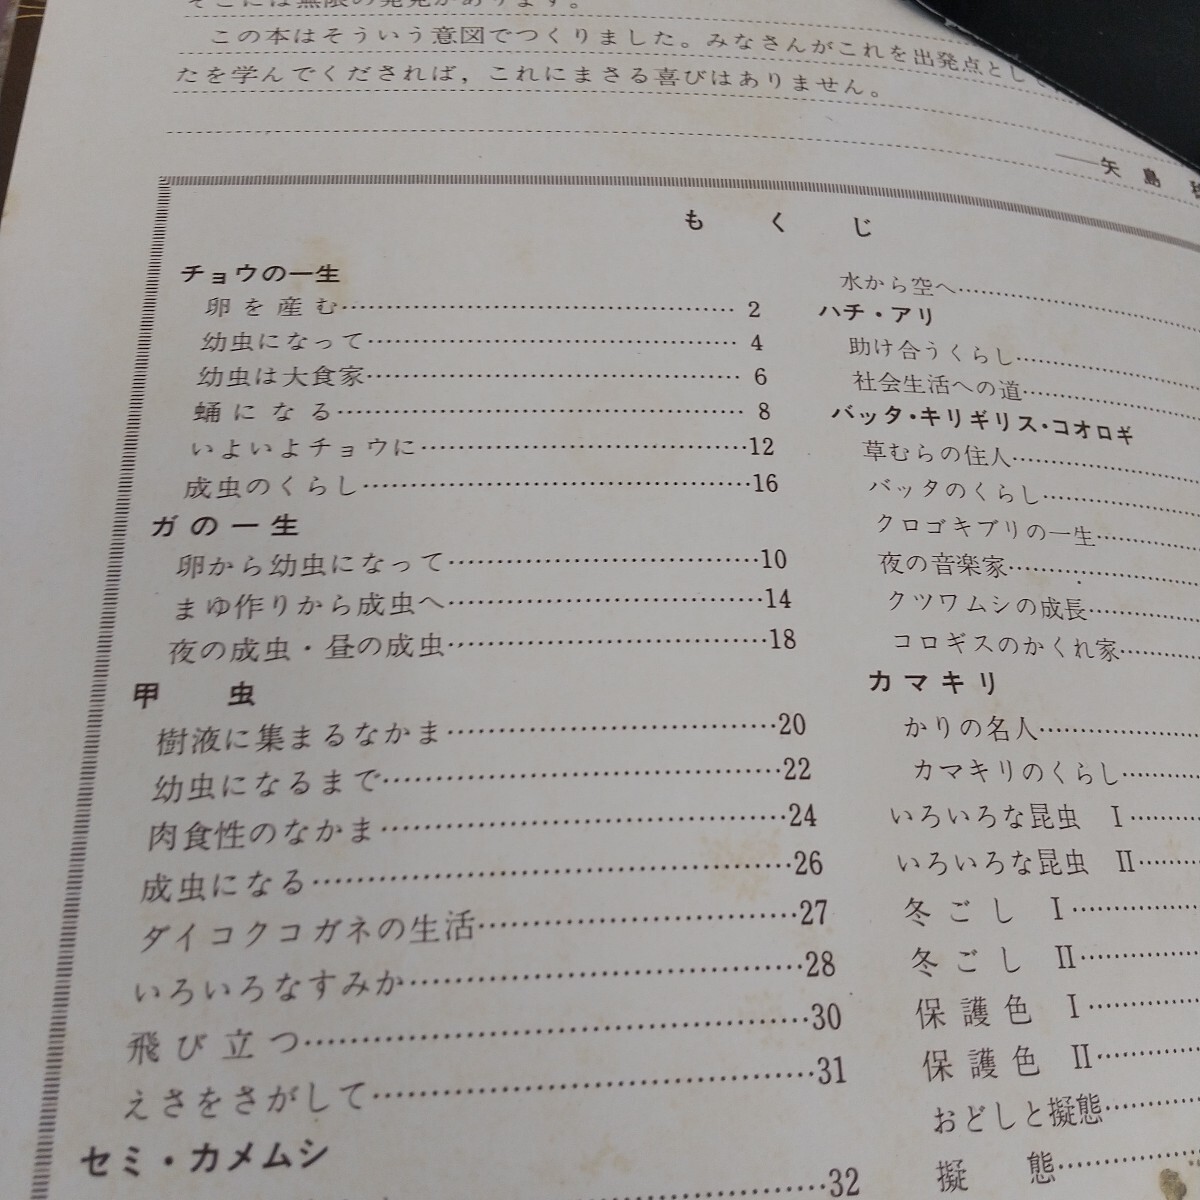 そこには無限の発見があります。
この本はそういう意図でつくりました。みなさんがこれを出発点として
たを学んでくだされば，これにまさる喜びはありません。
――矢島
もくじ
チョウの一生
卵を産む……2
幼虫になって……4
幼虫は大食家……6
蛹になる……8
いよいよチョウに……12
成虫のくらし……16
ガの一生
卵から幼虫になって……10
まゆ作りから成虫へ……14
夜の成虫・昼の成虫……18
甲虫
樹液に集まるなかま……20
幼虫になるまで……22
肉食性のなかま……24
成虫になる……26
ダイコクコガネの生活……27
いろいろなすみか……28
飛び立つ……30
えさをさがして……31
セミ・カメムシ
32
水から空へ……
ハチ・アリ
助け合うくらし……
社会生活への道……
バッタ・キリギリス・コオロギ
草むらの住人……
バッタのくらし……
クロゴキブリの一生……
夜の音楽家……
クツワムシの成長……
コロギスのかくれ家……
カマキリ
かりの名人……
カマキリのくらし……
いろいろな昆虫 Ⅰ……
いろいろな昆虫 Ⅱ……
冬ごし Ⅰ……
冬ごし Ⅱ……
保護色 Ⅰ……
保護色 Ⅱ……
おどしと擬態……
擬態……